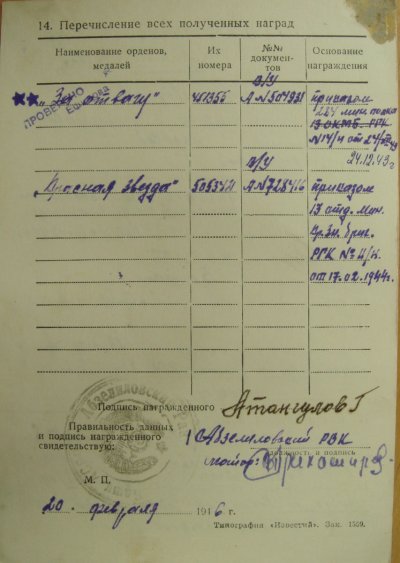 14. Перечисление всех полученных наград
Наименование орденов, медалей
Их номера
№№ докумен- тов
Основание награждения
ПРОВЕРЕНО
"За отвагу"
451355
в/у
А №504931
приказом
287 мин. полка
13 ОКМБ. РГК
№14/н от 24/
24.12.43 г.
"Красная Звезда"
505342
в/у
А №728416
приказом
13 отд. мин.
бриг.
РГК № 4/н.
от 17.02.1944г.
Подпись награжденного Атангулов Г
Правильность данных
и подпись награжденного
свидетельствую:
Абзелиловский РВК
должность и подпись
майор:
М. П.
20 февраля 1946 г.
Типография «Известий». Зак. 1509.